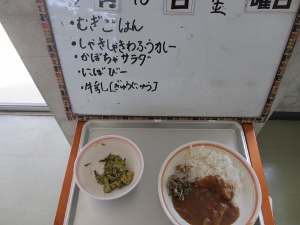 月 日 金 曜日
・むぎごはん
・しゃきしゃきわふうカレー
・かぼちゃサラダ
・にぼびー
・牛乳[ぎゅうにゅう]